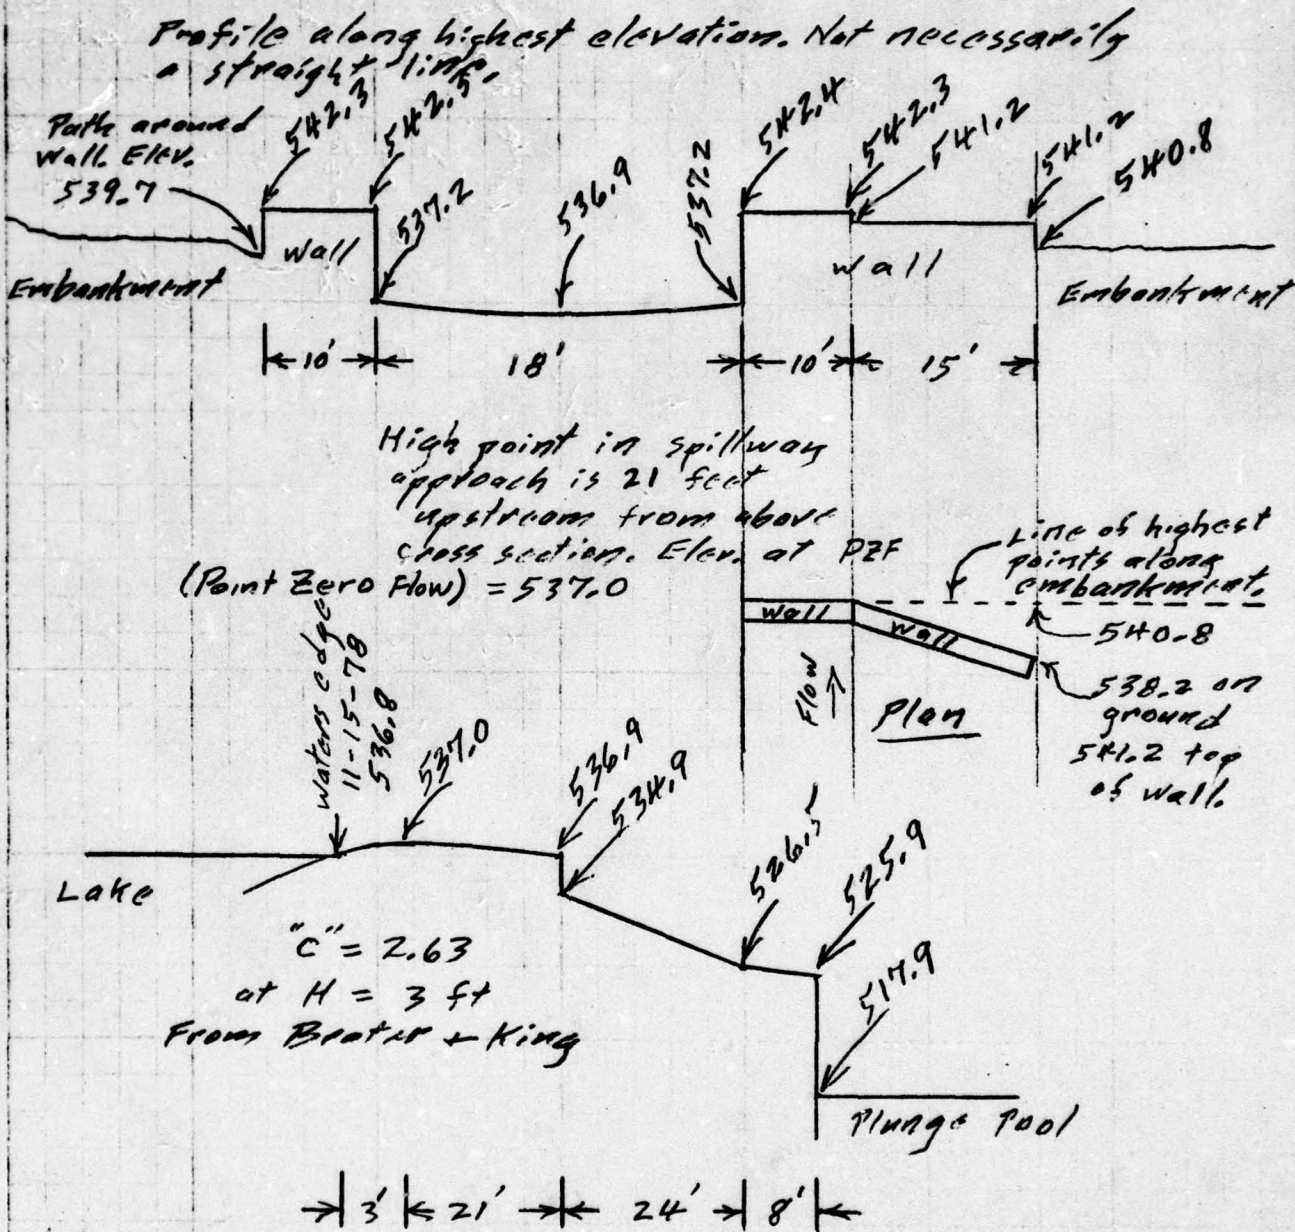 Profile along highest elevation. Not necessarily
a straight line.
Path around
wall. Elev.
539.7
542.3
542.3
537.2
536.9
537.2
542.4
542.3
541.2
541.2
540.8
Wall
wall
Embankment
Embankment
10'
18'
10'
15'
High point in spillway
approach is 21 feet
upstream from above
cross section. Elev. at PZF
(Point Zero Flow) = 537.0
Line of highest
points along
embankment.
540.8
wall
wall
Flow
Plan
538.2 on
ground
541.2 top
of wall.
waters edge
11-15-78
536.8
537.0
536.9
534.9
526.5
525.9
517.9
Lake
"C" = 2.63
at H = 3 ft
From Brater + King
Plunge Pool
3'
21'
24'
8'